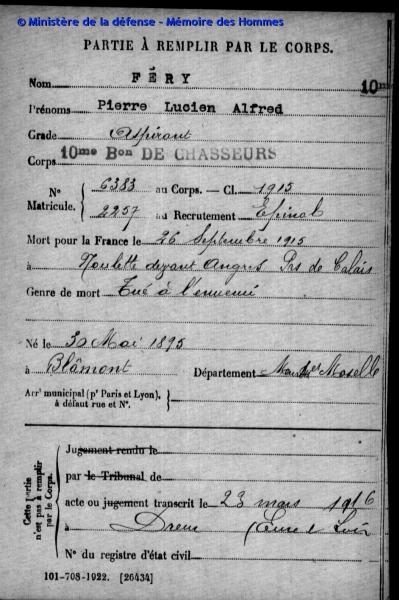 © Ministère de la défense - Mémoire des Hommes
PARTIE À REMPLIR PAR LE CORPS.
Nom FÉRY 10me
Prénoms Pierre Lucien Alfred
Grade Aspirant
Corps 10me Bon DE CHASSEURS
N° Matricule. 6383 au Corps. — Cl. 1915
2257 au Recrutement Epinal
Mort pour la France le 26 Septembre 1915
à Noulette devant Angres Pas de Calais
Genre de mort Tué à l'ennemi
Né le 30 Mai 1895
à Blâmont Département Meurthe et Moselle
Arrt municipal (pr Paris et Lyon),
à défaut rue et N°.
Cette partie n'est pas à remplir par le Corps.
Jugement rendu le
par le Tribunal de
acte ou jugement transcrit le 23 mars 1916
à Dreux Eure et Loir
N° du registre d'état civil
101-708-1922. [26434]